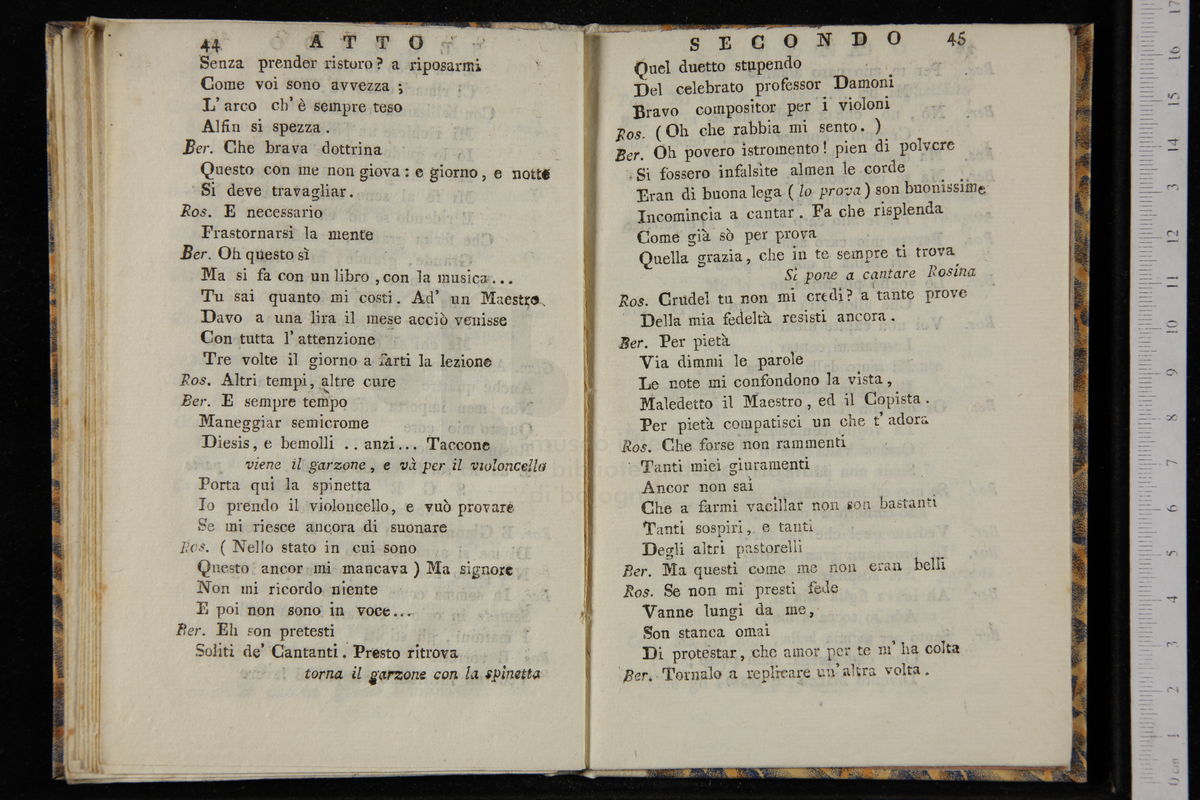 44 ATTO
Senza prender ristoro? a riposarmi
Come voi sono avvezza ;
L' arco ch' è sempre teso
Alfin si spezza .
Ber. Che brava dottrina
Questo con me non giova : e giorno , e notte
Si deve travagliar .
Ros. E necessario
Frastornarsi la mente
Ber. Oh questo sì
Ma si fa con un libro , con la musica ...
Tu sai quanto mi costi . Ad' un Maestro
Davo a una lira il mese acciò venisse
Con tutta l' attenzione
Tre volte il giorno a farti la lezione
Ros. Altri tempi , altre cure
Ber. E sempre tempo
Maneggiar semicrome
Diesis , e bemolli .. anzi ... Taccone
viene il garzone , e và per il violoncello
Porta qui la spinetta
Io prendo il violoncello , e vuò provare
Se mi riesce ancora di suonare
Ros. ( Nello stato in cui sono
Questo ancor mi mancava ) Ma signore
Non mi ricordo niente
E poi non sono in voce ...
Ber. Eh son pretesti
Soliti de' Cantanti . Presto ritrova
torna il garzone con la spinetta
SECONDO 45
Quel duetto stupendo
Del celebrato professor Damoni
Bravo compositor per i violoni
Ros. ( Oh che rabbia mi sento . )
Ber. Oh povero istromento ! pien di polvere
Si fossero infalsite almen le corde
Eran di buona lega ( lo prova ) son buonissime
Incomincia a cantar . Fa che risplenda
Come già sò per prova
Quella grazia , che in te sempre ti trova
Si pone a cantare Rosina
Ros. Crudel tu non mi credi ? a tante prove
Della mia fedeltà resisti ancora .
Ber. Per pietà
Via dimmi le parole
Le note mi confondono la vista ,
Maledetto il Maestro , ed il Copista .
Per pietà compatisci un che t' adora
Ros. Che forse non rammenti
Tanti miei giuramenti
Ancor non sai
Che a farmi vacillar non son bastanti
Tanti sospiri , e tanti
Degli altri pastorelli
Ber. Ma questi come me non eran belli
Ros. Se non mi presti fede
Vanne lungi da me ,
Son stanca omai
Di protestar , che amor per te m' ha colta
Ber. Tornalo a replicare un' altra volta .
0 cm 1 2 3 4 5 6 7 8 9 10 11 12 13 14 15 16 17